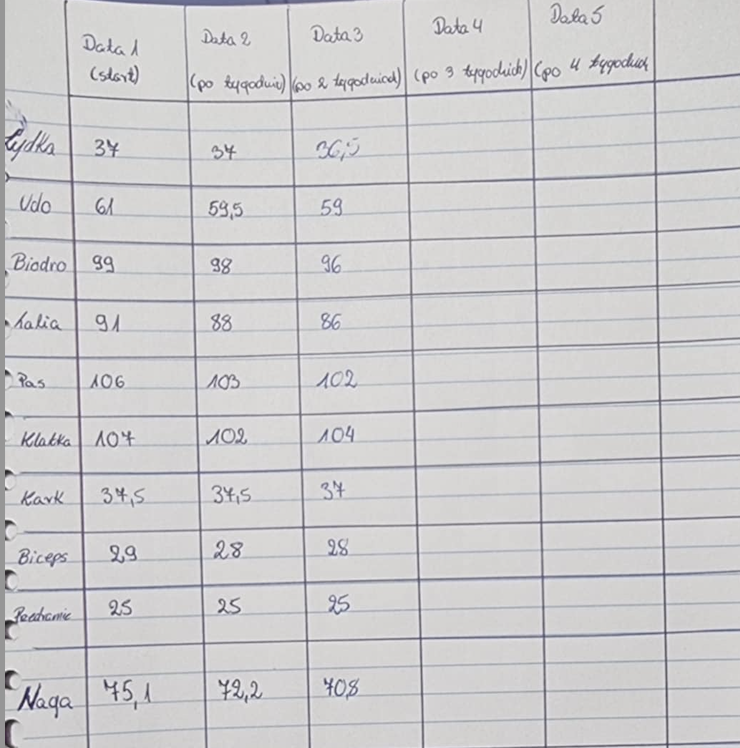 Data 1 Data 2 Data 3 Data 4 Data 5
(start) (po tygodniu) (po 2 tygodniach) (po 3 tygodniach) (po 4 tygodniach
Łydka 37 37 36,5
Udo 61 59,5 59
Biodro 99 98 96
Talia 91 88 86
Pas 106 103 102
Klatka 107 102 104
Kark 37,5 37,5 37
Biceps 29 28 28
25 25 25
Waga 75,1 72,2 70,8